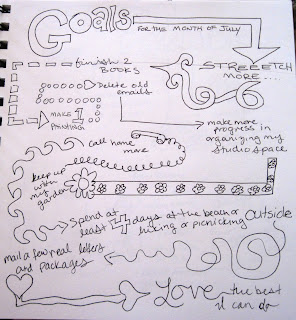 Goals
FOR THE MONTH OF JULY
finish 2
BOOKS
STREEEETCH
MORE....
Delete old
emails
MAKE 1
PAINTING
make more
progress in
organizing my
studio space
call home
more
keep up
with my
garden
Spend at
least 4 days at the beach or
hiking or picnicking outside
mail a few real letters
and packages
Love the best
i can do